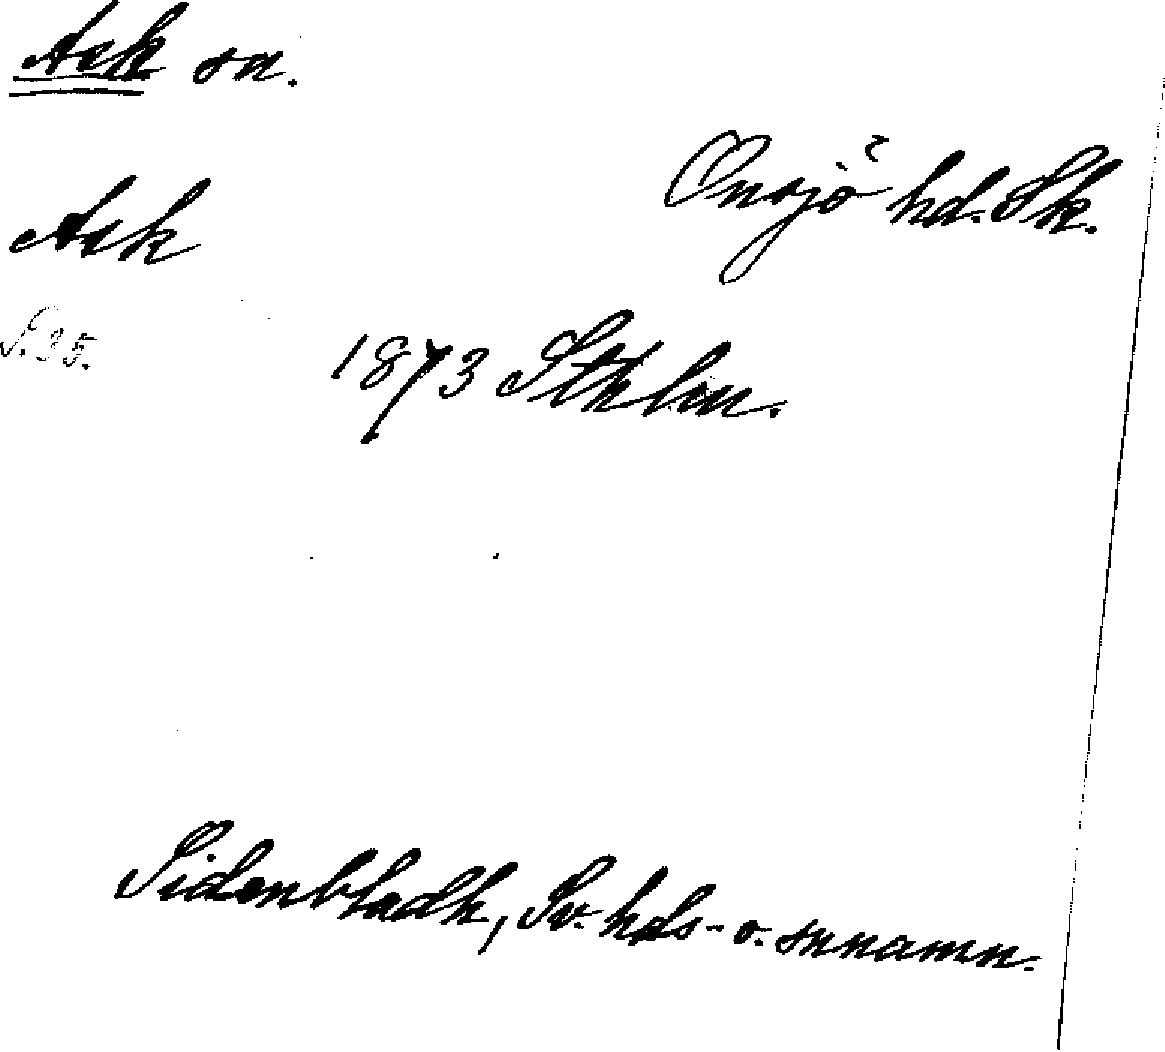 Ask sn.
Onsjö hd. Sk.
Ask
S. 35.
1873 Sthlm.
Sidenbladh, Sv. hds- o. snnamn.